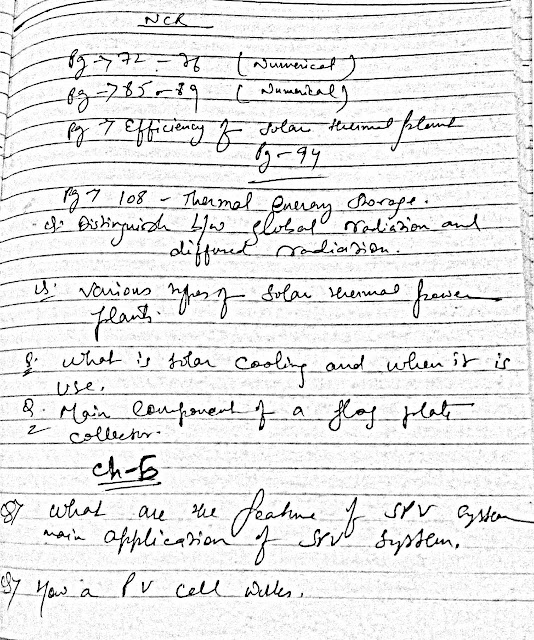 NCR
Pg → 72 - 76 (Numerical)
Pg → 85 - 89 (Numerical)
Pg → Efficiency of solar thermal plant
Pg - 94
Pg → 108 - Thermal energy storage.
Q. Distinguish b/w global radiation and
diffused radiation.
Q. Various types of solar thermal power
plants.
Q. What is solar cooling and when it is
use.
Q. Main Component of a flag plate
collector.
Ch-5
Q7 What are the feature of SPV System
main application of SPV System.
Q7 How a PV cell works.